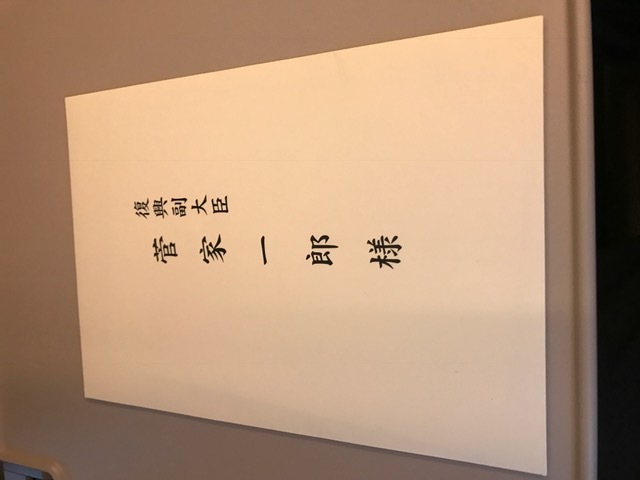 復興副大臣
菅家一郎様